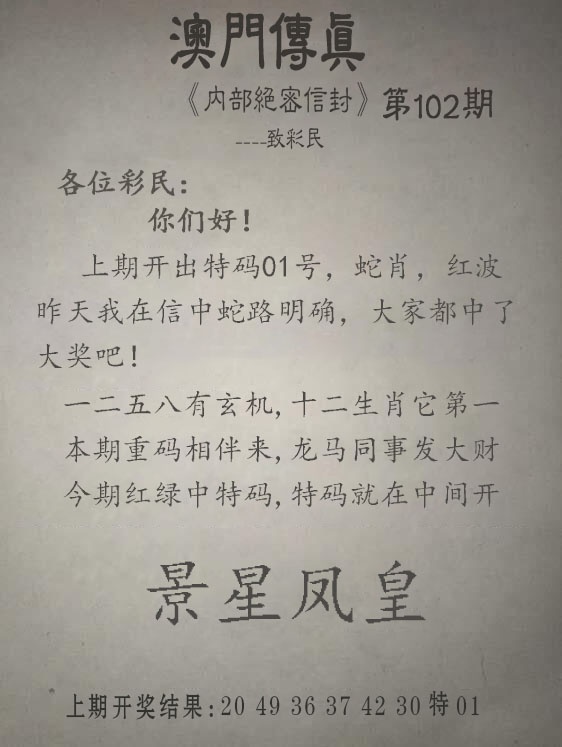 澳門傳眞
《内部絕密信封》第102期
----致彩民
各位彩民:
你们好!
上期开出特码01号，蛇肖，红波
昨天我在信中蛇路明确，大家都中了
大奖吧!
一二五八有玄机,十二生肖它第一
本期重码相伴来,龙马同事发大财
今期红绿中特码,特码就在中间开
景星凤皇
上期开奖结果:20 49 36 37 42 30 特 01